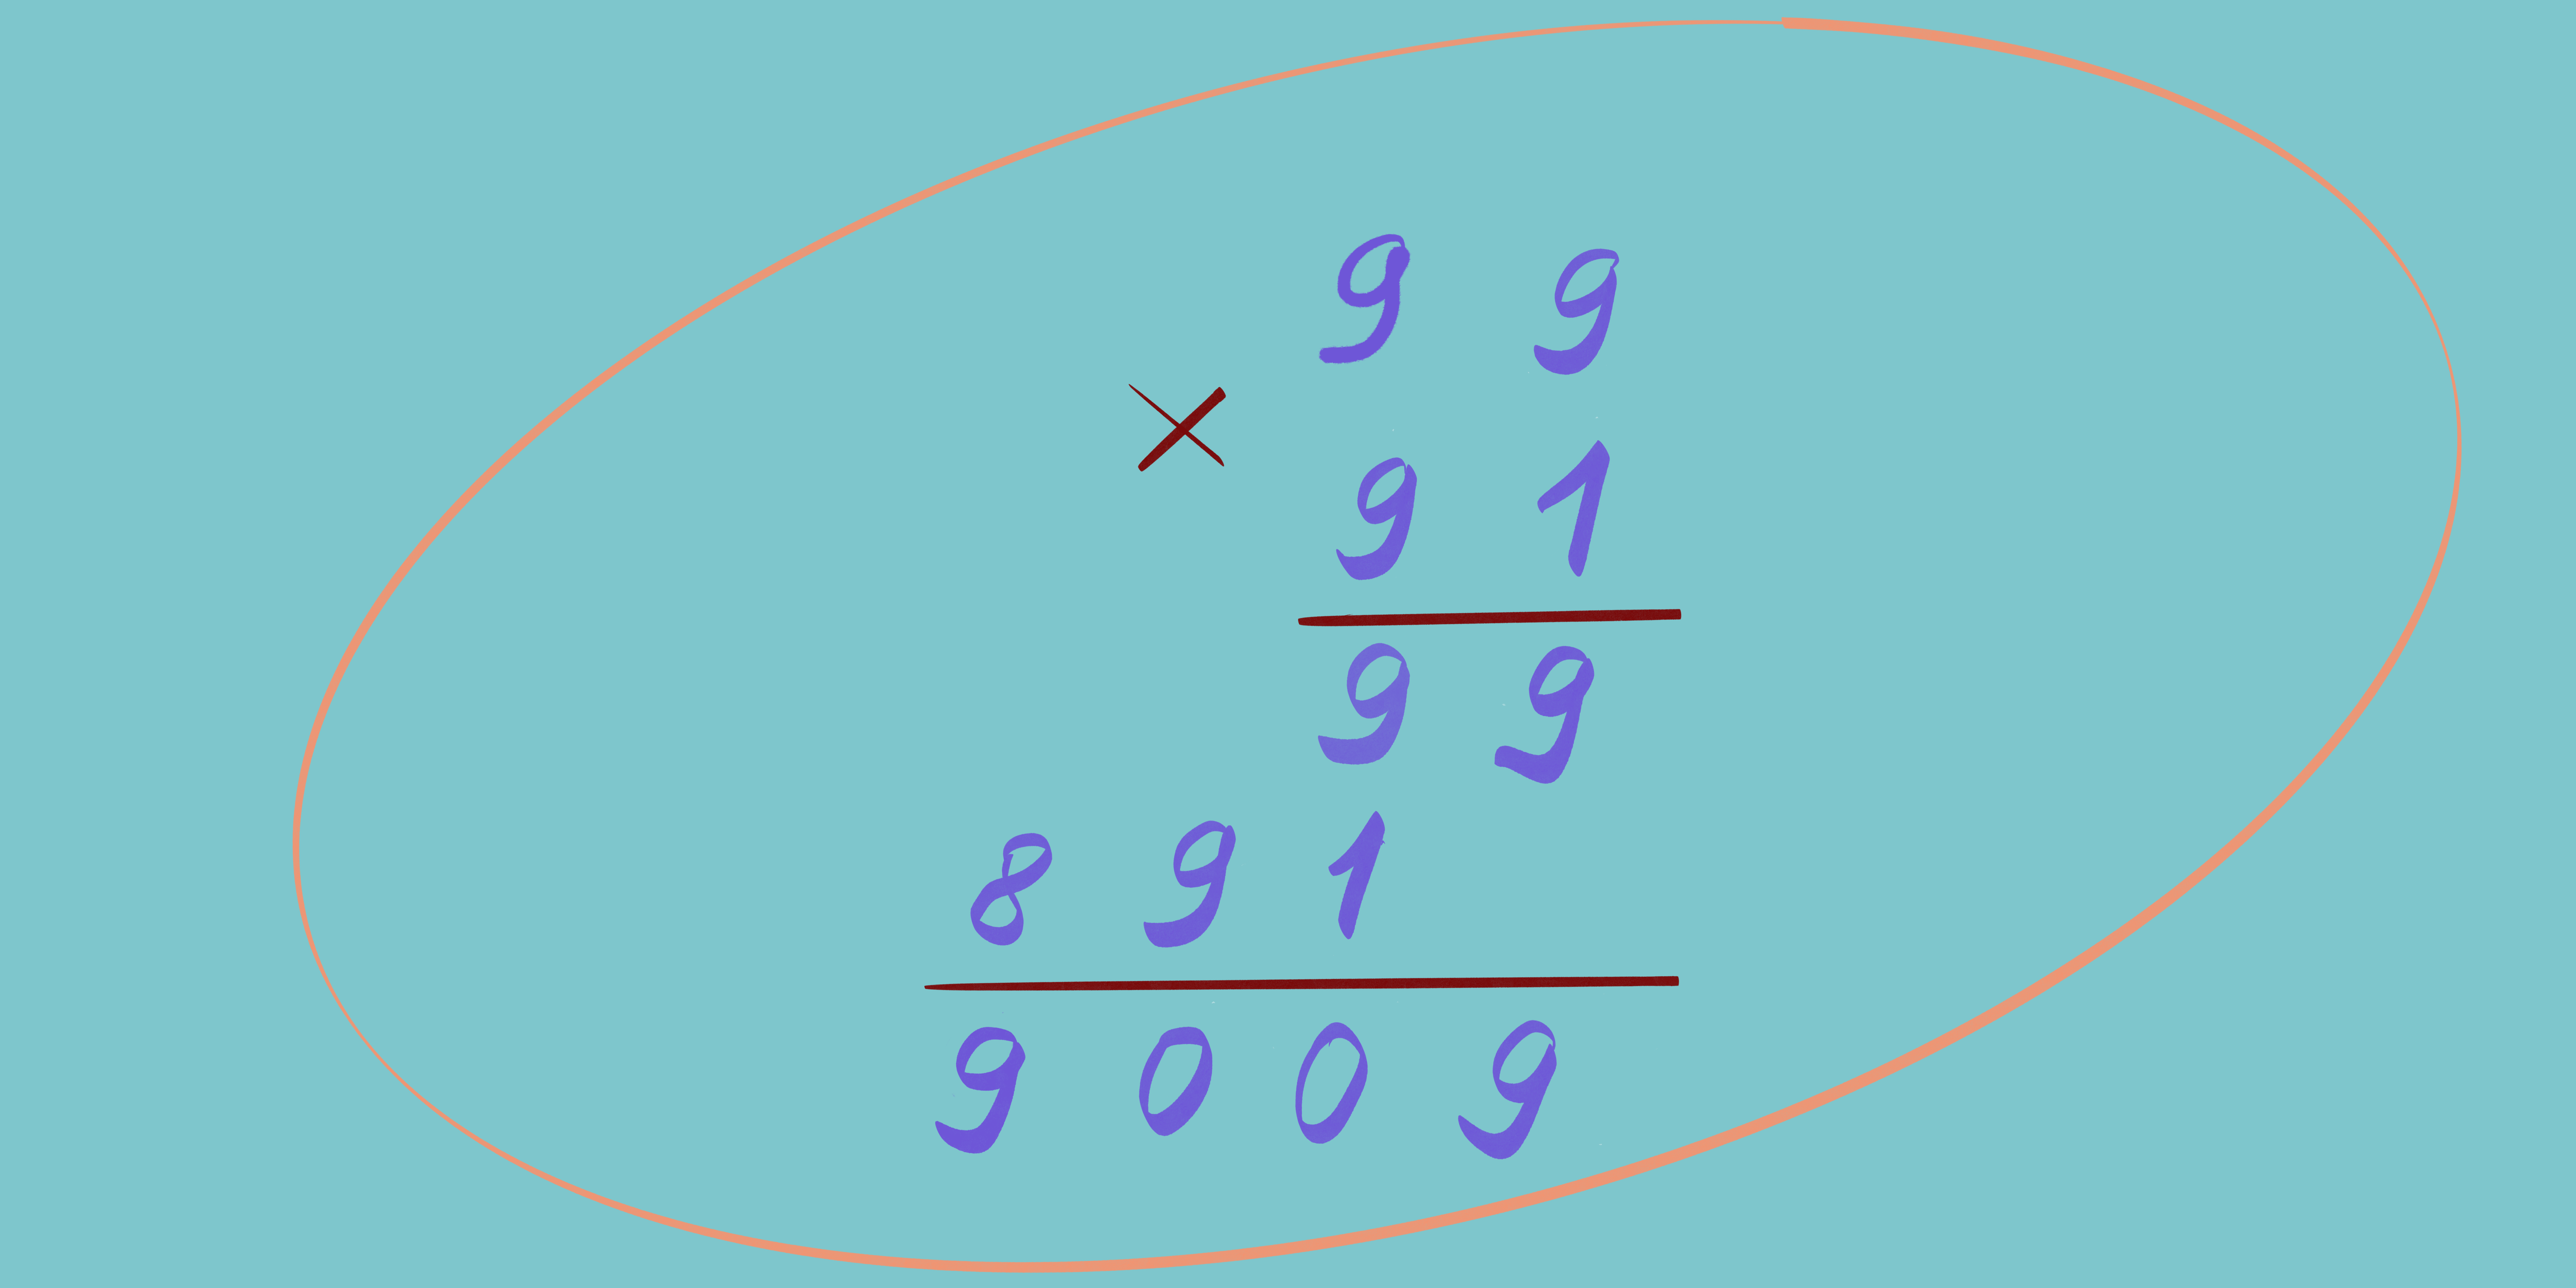 9 9
×
9 1
9 9
8 9 1
9 0 0 9